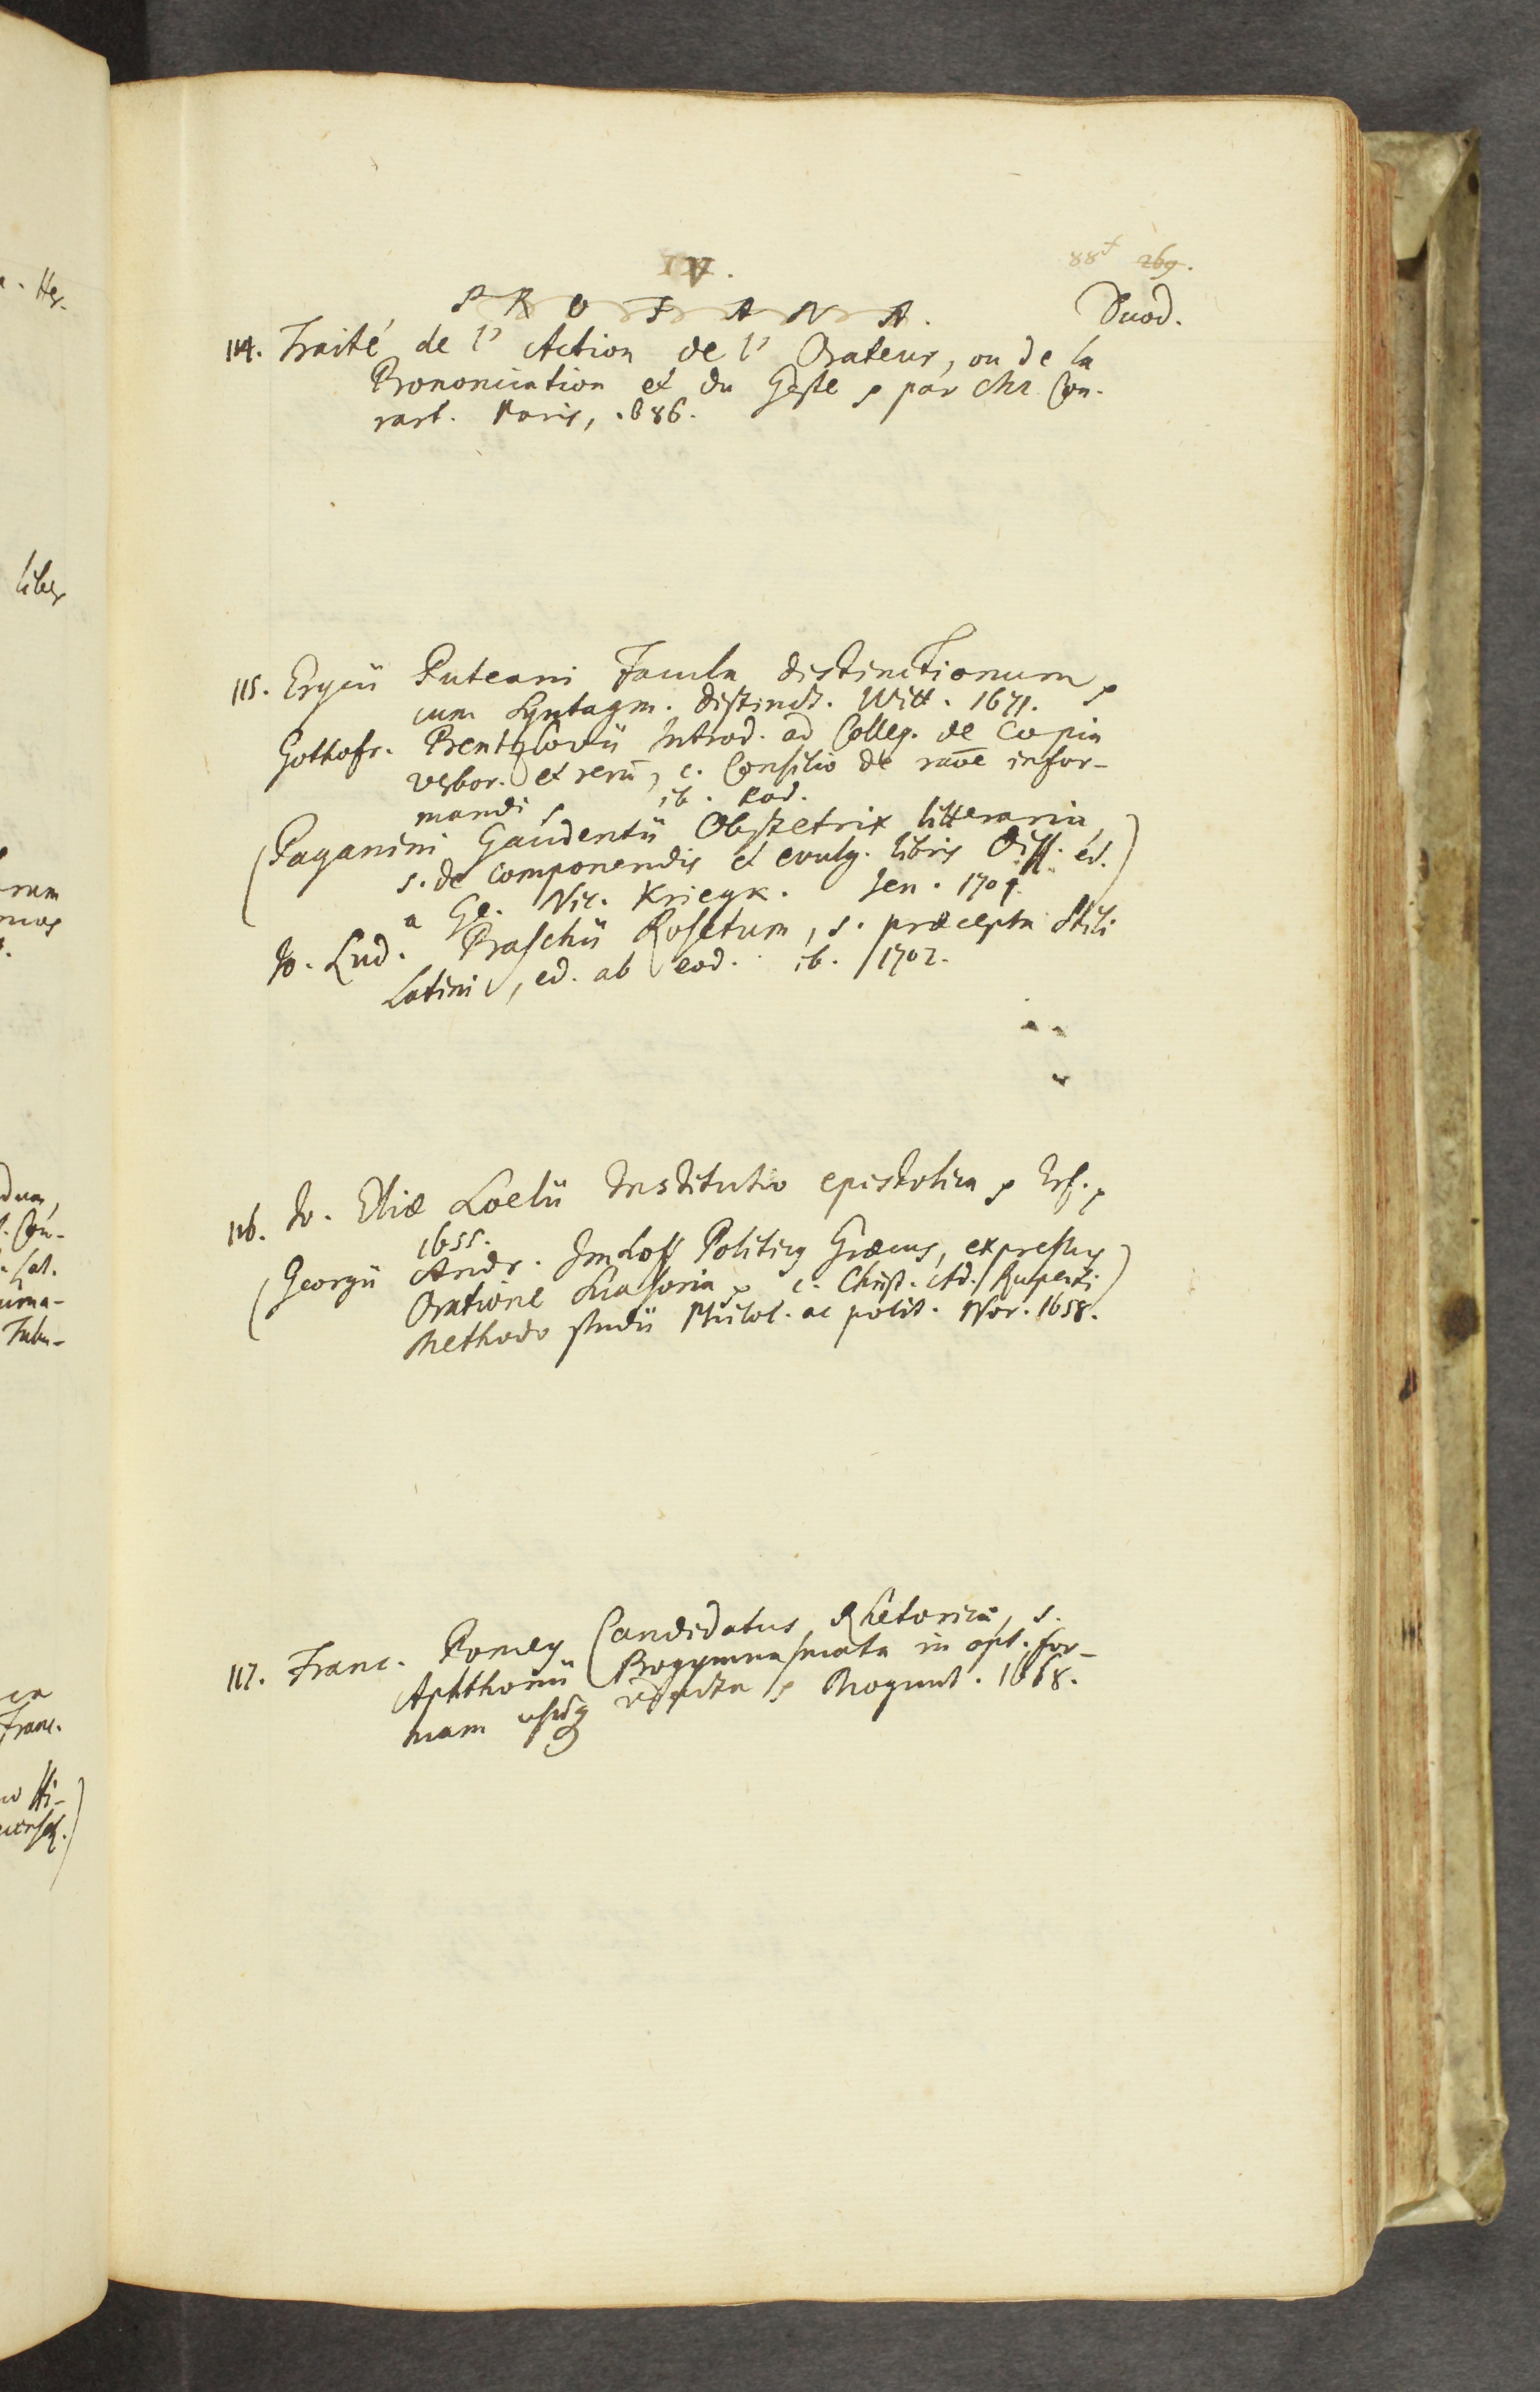 IV.
88 269.
PROFANA.
Duod.
114. Traité de l' Action de l' Orateur, ou de la
Prononciation et du Geste, par Mr. Con-
rart. Paris, 1686.
115. Erycii Puteani Facula distinctionum,
cum Syntagm. distinct. Witt. 1671.
Gothofr. Prentzlovii Introd. ad Colleg. de Copia
verbor. et rerū, c. Consilio de raōe infor-
mandi, ib. eod.
(Paganini Gaudentii Obstetrix litteraria,
s. de componendis et evulg. libris Diss. ed.)
a Ge. Nic. Kriegk. Jen. 1704.
Jo. Lud. Praschii Rosetum, s. præcepta Stili
Latini, ed. ab eod. ib. 1702.
116. Jo. Eliæ Loelii Institutio epistolica, Erf.,
1655.
(Georgii Andr. Imhoff Politicus Græcus, expressus
Oratione Suasoria, c. Christ. Ad. Ruperti)
Methodo studii Philol. ac polit. Nor. 1658.
117. Franc. Pomey Candidatus Rhetoricæ, s.
Aphthonii Progymnasmata in opt. for-
mam usūq redacta, Mogunt. 1668.
. Her-
liber
rum
duas,
. Con-
Sat.
uma-
Tubu-
Franc.
Hi-